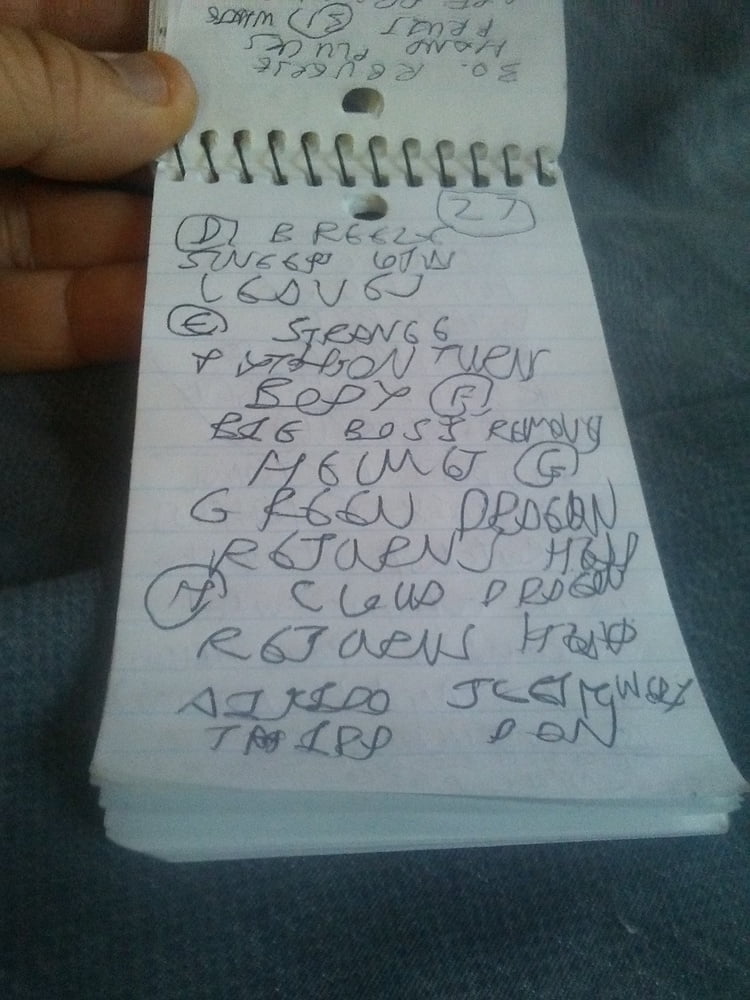 30. REVERSE
HAND PLUCKS
FRUIT (E) WHOLE
27
(D) BREEZE
SWEEP
LEAVES
(E) STRANGE
PYTHON TURN
BODY (F)
BIG BOSS REMOVE
HELMET (G)
GREEN DRAGON
RETURNS HEAD
(H) CLOUD DRAGON
RETURNS HEAD
AIKIDO
THIRD DAN